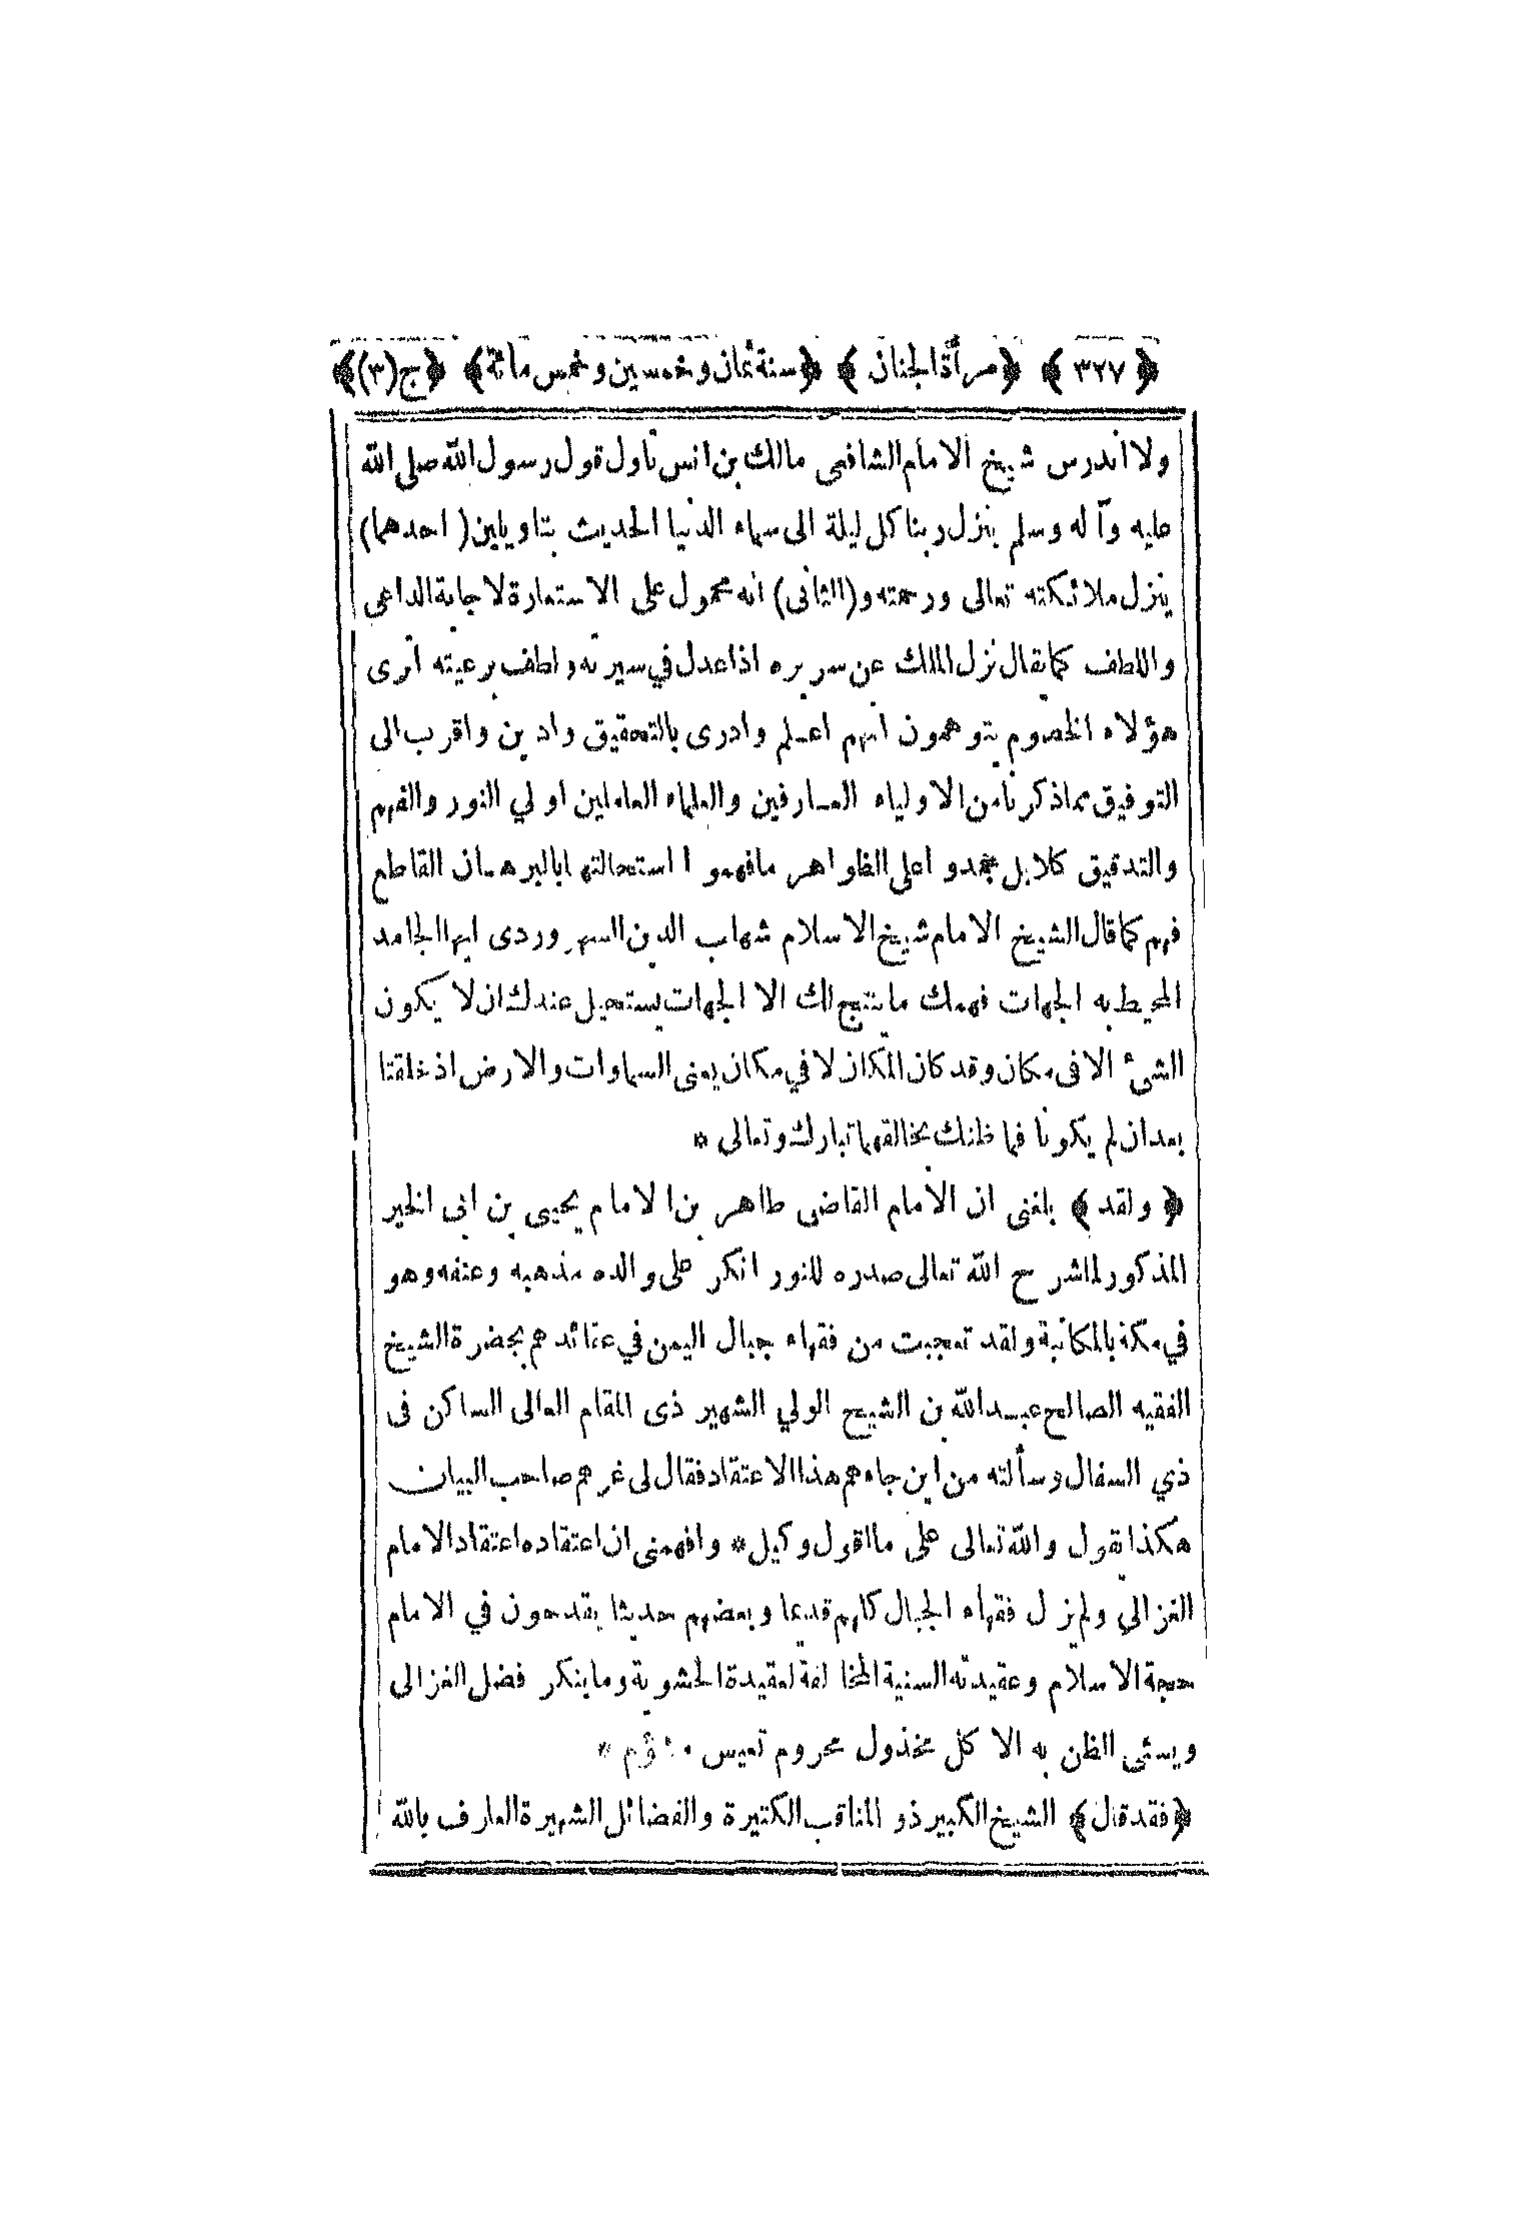 ﴿ ٣٢٧ ﴾ ﴿مرآة الجنان ﴾ ﴿سنة ثمان وخمسين وخمس مائة﴾ ﴿ج(٣)﴾
شيخ الامام الشافعى مالك بن انس تاول قول رسول الله صلى الله
عليه وآله وسلم ينزل ربنا كل ليلة الى سماء الدنيا الحديث بتاويلين (احدهما)
ينزل ملائكته تعالى ورحمته و(الثانى) انه محمول على الاستعارة لاجابة الداعى
واللطف كما يقال نزل الملك عن سريره اذا عدل في سيرته ولطف برعيته اترى
هؤلاء الخصوم يتوهمون انهم اعلم وادرى بالتحقيق وادين واقرب الى
التوفيق مما ذكرنا من الاولياء العارفين والعلماء العاملين اولي النور والفهم
والتدقيق كلا بل جمدوا على الظواهر ما فهموا استحالتها بالبرهان القاطع
فهم كما قال الشيخ الامام شيخ الاسلام شهاب الدين السهروردى ايها الجامد
المحيط به الجهات فهمك ما ينتج لك الا الجهات يستحيل عندك ان لا يكون
الشىء الا فى مكان وقد كان المكان لا في مكان يعنى السماوات والارض اذ خلقتا
بعد ان لم يكونا فما ظنك بخالقهما تبارك وتعالى *
﴿ ولقد ﴾ بلغنى ان الامام القاضى طاهر بن الامام يحيى بن ابى الخير
المذكور لما شرح الله تعالى صدره للنور انكر على والده مذهبه وعنفه وهو
في مكة بالمكاتبة ولقد تعجبت من فقهاء جبال اليمن في عقائدهم بحضرة الشيخ
الفقيه الصالح عبد الله بن الشيخ الولي الشهير ذى المقام العالى الساكن فى
ذي السفال وسألته من اين جاءهم هذا الاعتقاد فقال لى غرهم صاحب البيان
هكذا يقول والله تعالى على ما اقول وكيل* وافهمنى ان اعتقاده اعتقاد الامام
الغزالي ولم يزل فقهاء الجبال كلهم قديما وبعضهم حديثا يقدحون في الامام
حجة الاسلام وعقيدته السنية المخالفة لعقيدة الحشوية وما ينكر فضل الغزالى
ويسئى الظن به الا كل مخذول محروم تعيس *
﴿فقد قال﴾ الشيخ الكبير ذو المناقب الكثيرة والفضائل الشهيرة العارف بالله